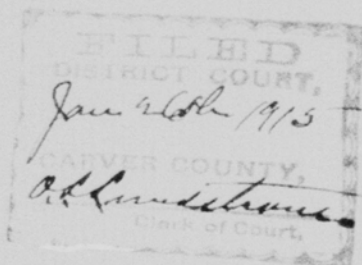 FILED
DISTRICT COURT,
Jan 26th 1915
CARVER COUNTY,
Clerk of Court.